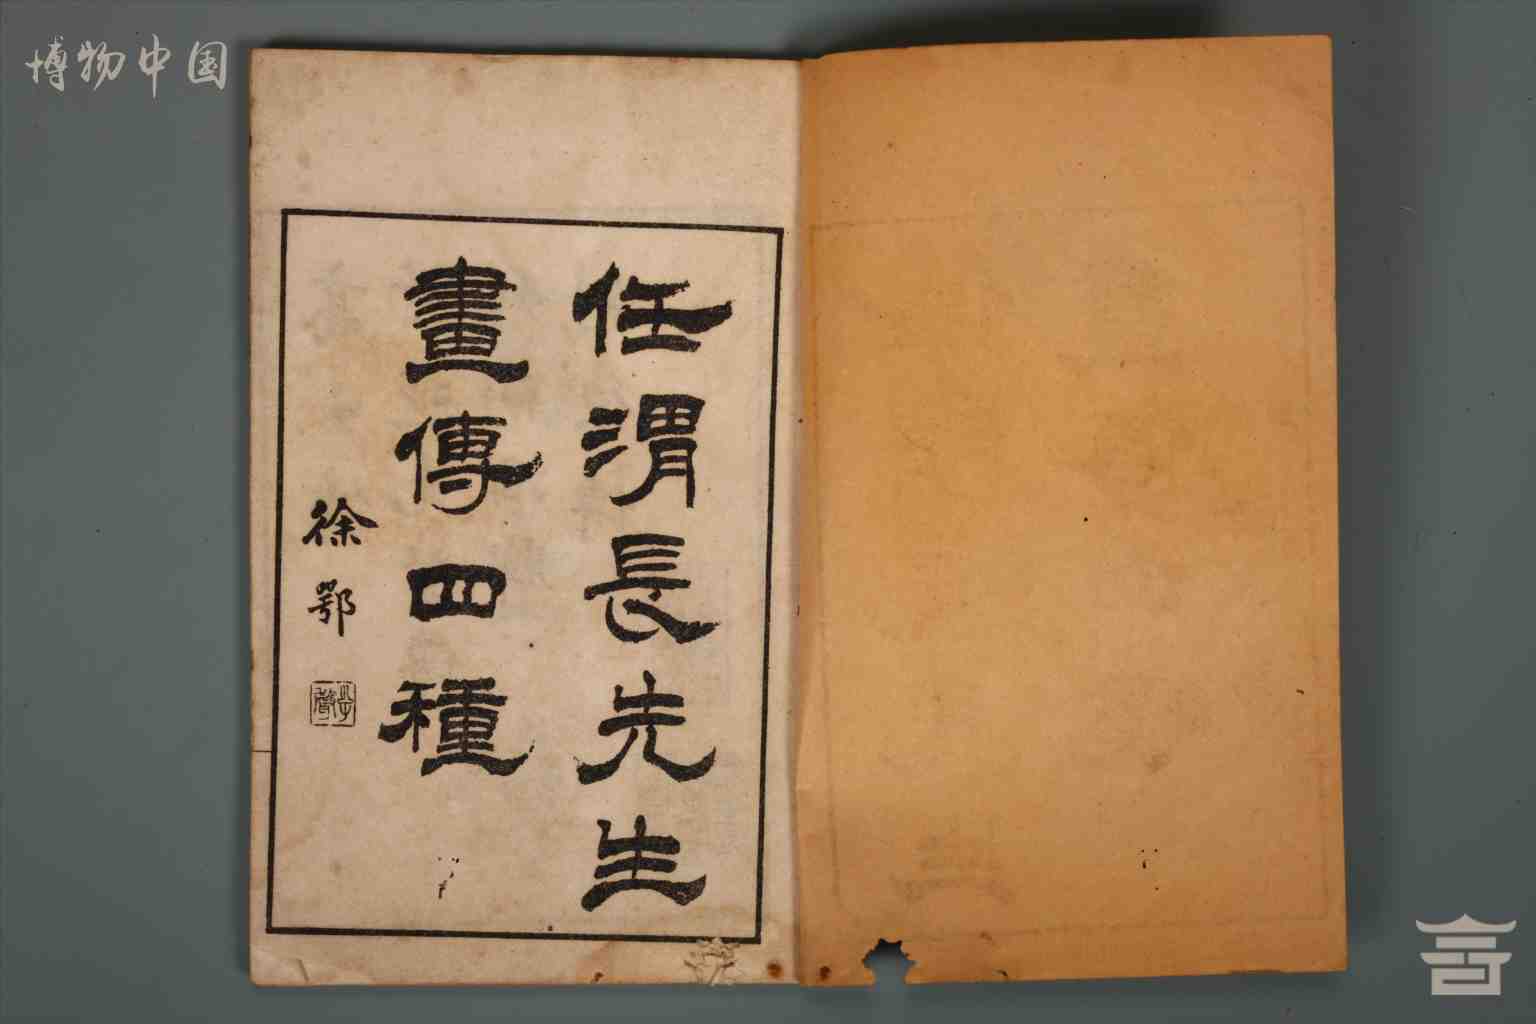 博物中国
任渭長先生
畫傳四種
徐鄂